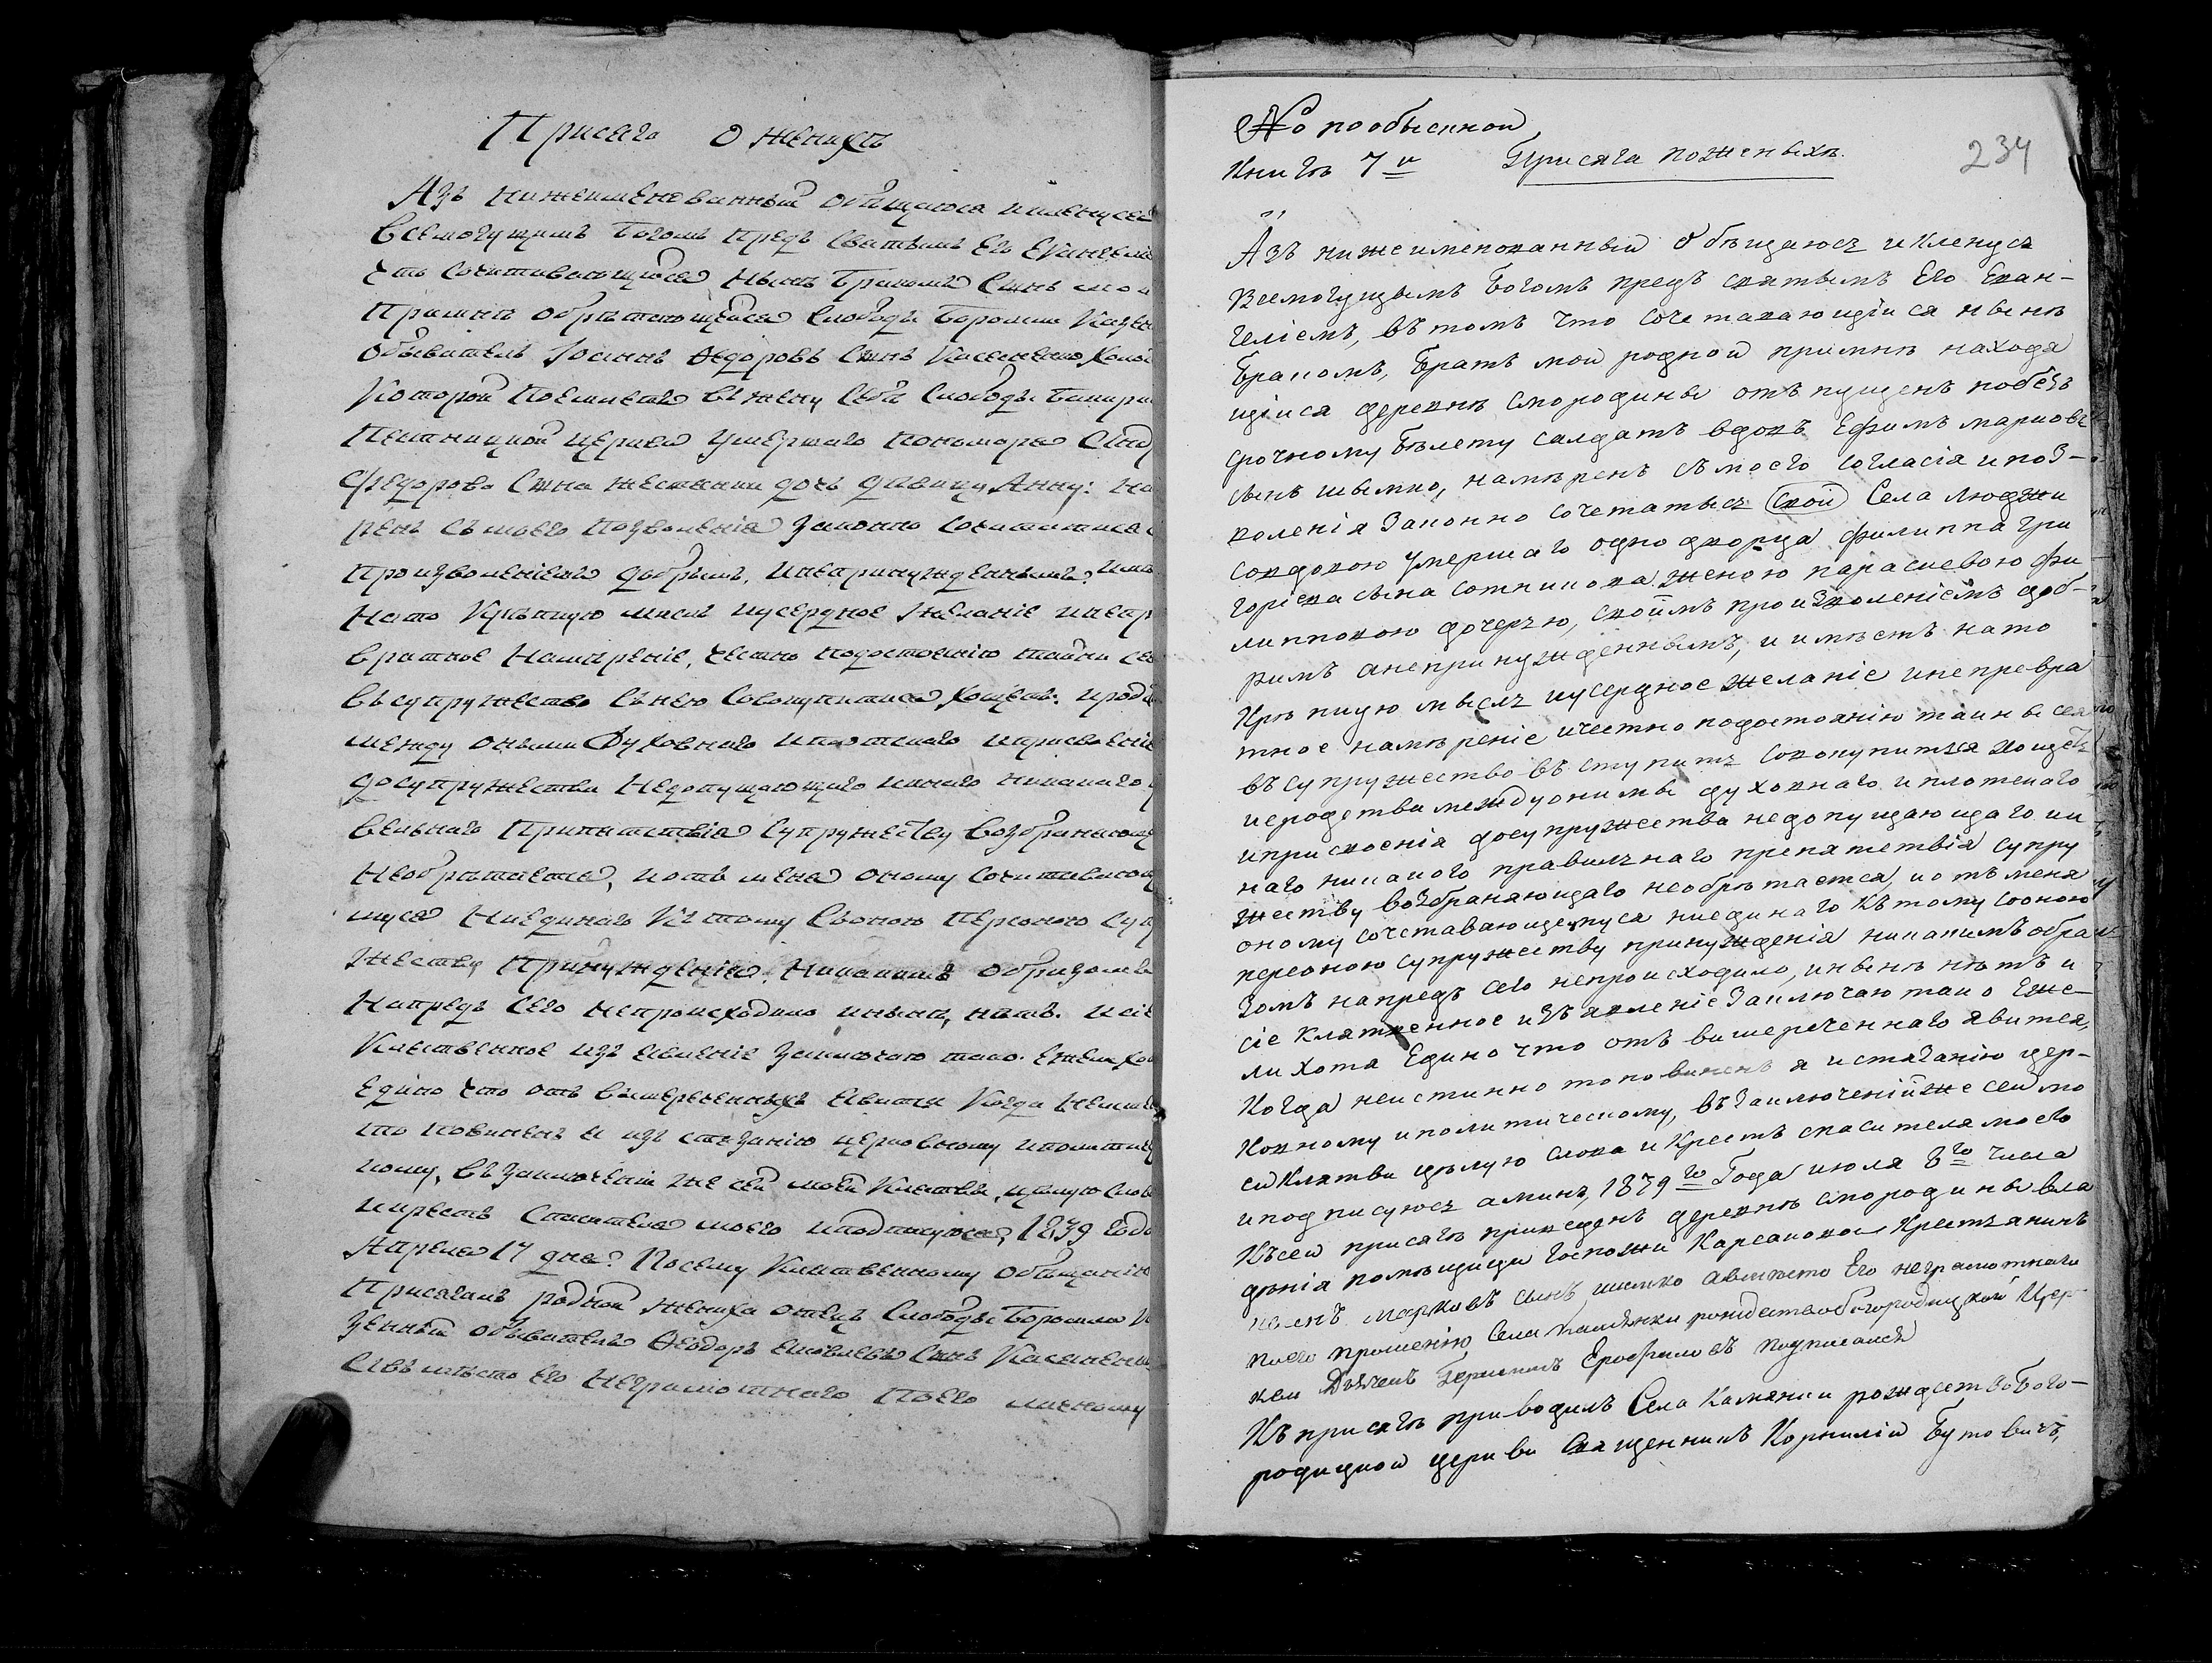 Присяга о женихѣ
Азъ нижеименованный обѣщаюся и кленуся
всемогущимъ Богомъ предъ святымъ Его Евангелі
что сочитивающійся нынѣ бракомъ Сынъ мой
при мнѣ обрѣтающійся Слободы Боромли Казен
обыватель Іоаннъ Ѳедоровъ Сынъ Касьяненко холос
которой поемлетъ въ жену себѣ Слободы
церкви умершаго пономаря
Федорова Сына дочь дѣвицу Анну: на
ренъ съ моего позволенія законно сочитатися
произволеніемъ добрымъ, и непринужденнымъ, има
на то крѣпкую мысль и усердное желаніе и непр
вратное намѣреніе, честно по достоянію тайны се
въ супружество съ нею совокупитися хощетъ: и родс
между оными духовнаго и плотскаго и присвоенія
до супружества недопущающаго инаго никакого
вельнаго припятствія супружеству возбраняющ
необрѣтается, и отъ мене оному сочитавающ
муся ниединаго къ тому съоною персоною суп
жеству принужденія никакимъ образомъ
напредъ сего непроисходило и нынѣ нѣтъ. и сіе
клятвенное изъявленіе заключаю тако. Ежели хо
едино что отъ вышереченныхъ явится когда неист
то повиненъ я изстязанію церковному и политич
кому, въ заключеніи же сей моей клятвы, цѣлую слов
и крестъ Спасителя моего и подписуюся, 1839 года
Апреля 17 дня. По сему клятвенному обѣщанію
присягалъ родной жениха отецъ Слободы Боромли К
зенный обыватель Ѳеодоръ Яковлевъ Сынъ Касьяненко
А въмѣсто его неграмотнаго по его личному
№ по обыскной
Книгѣ 7й Присяга по женыхѣ.
234
Азъ нижеименованный обѣщаюсь и кленусь
Всемогущымъ Богомъ предъ святымъ Его Еван-
геліемъ, въ томъ что сочетавающійся нынѣ
бракомъ, братъ мой родной примнѣ находя
щійся деревнѣ Смородины отъпущенъ побезъ
срочному бѣлету салдатъ вдовъ Ефимъ марковъ
сынъ шымко, намѣренъ съ моего согласія и поз-
воленія законно сочетатысь (свой) Села Люджи
совдовою умершаго однодворца филиппа гри
горіева сына сотникова женою параскевою фи
липповою дочерью, своимъ произволеніемъ доб-
римъ анепринужденнымъ, и имѣетъ на то
крѣпкую мысль иусердное желаніе инепревра
тное намѣреніе ичестно подостоянію таины сея
въ супружество въступить совокупится хощетъ
иеродства междуонимы духовнаго и плотскаго
иприсвоенія досупружества недопущающаго ин
наго никакого правилнаго препятствія супру
жеству возбраняющаго необрѣтается, и отъ меня
оному сочетавающемуся ниединаго къ тому соною
персоною супружеству принужденія никакимъ обра
зомъ напредъ сего непроисходило, инынѣ нѣтъ и
сіе клятвенное изъявленіе заключаю тако Еже-
ли хотя Едино что отъ вишереченнаго явится,
когда неистинно то повиненъ я истязанію цер-
ковному иполитическому, въ заключеній же сей мо
ей клятви цѣлую слова и крестъ спасителя моего
иподписуюсь аминь, 1839го Года июля 8го числа
Къ сей присягѣ приведенъ деревнѣ смородины вла
дѣнія помѣщици Госпожи Карсаковой крестьянинъ
марковъ сынъ шимко авмѣсто Его неграмотнаго
поего прошенію Села камянки рождествобогородицкой Цер-
кви Дьячекъ Ерофиловъ подписался
Къ присягѣ приводилъ Села Камянки рождествобого-
родицкой церкви Священникъ Корнилій Бутовичъ,